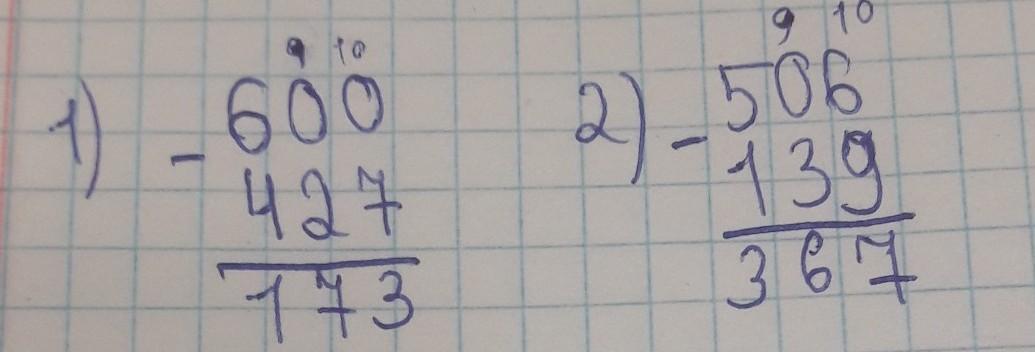 9 10
1) - 600
427
173
9 10
2) - 506
139
367